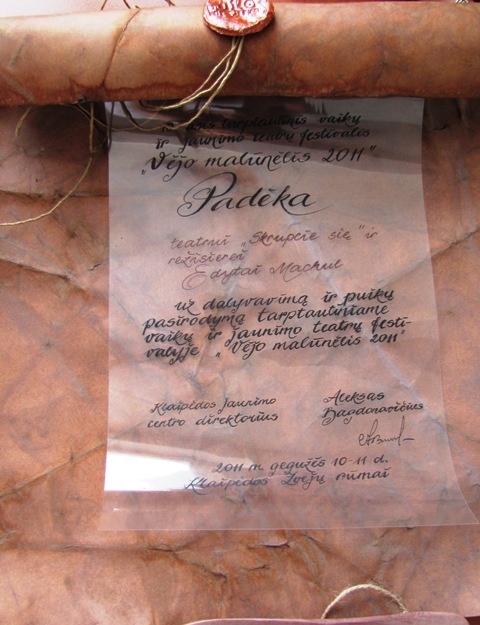 tarptautinis vaikų
ir jaunimo teatrų festivalis
„Vėjo malūnėlis 2011"
Padėka
teatrui „Skrupcie się" ir
režisierei
Edytai Mackul
už dalyvavimą ir puikų
pasirodymą tarptautiniame
vaikų ir jaunimo teatrų festi-
valyje „Vėjo malūnėlis 2011"
Klaipėdos jaunimo
centro direktorius
Aleksas
Bagdonavičius
2011 m. gegužės 10-11 d.
Klaipėdos Žvejų rūmai